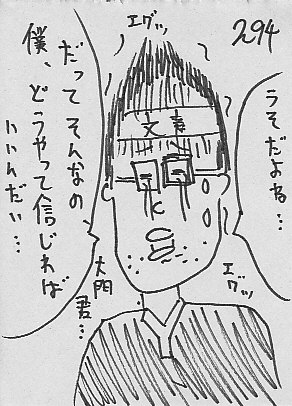 294
うそだよね…
エグッ
だってそんなの
僕、どうやって信じれば
いいんだい…
大門
君…
エグッ